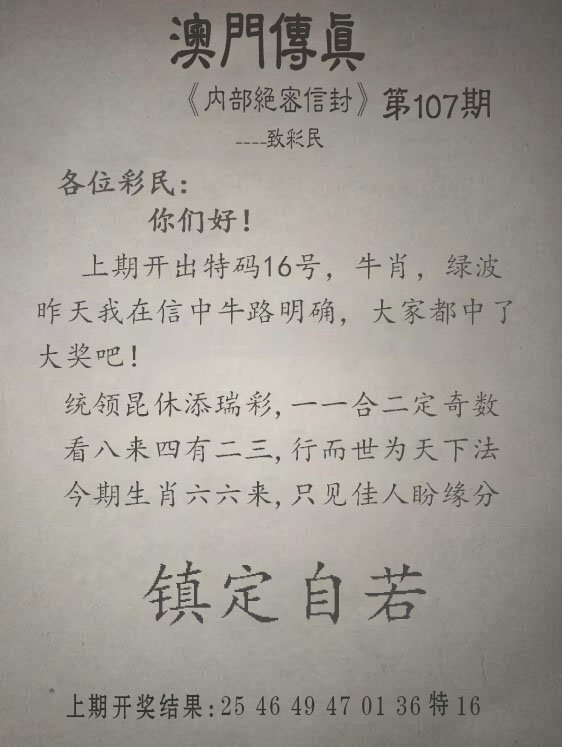 澳門傳真
《内部絕密信封》第107期
----致彩民
各位彩民：
你们好！
上期开出特码16号，牛肖，绿波
昨天我在信中牛路明确，大家都中了
大奖吧！
统领昆休添瑞彩,一一合二定奇数
看八来四有二三,行而世为天下法
今期生肖六六来,只见佳人盼缘分
镇定自若
上期开奖结果:25 46 49 47 01 36 特 16